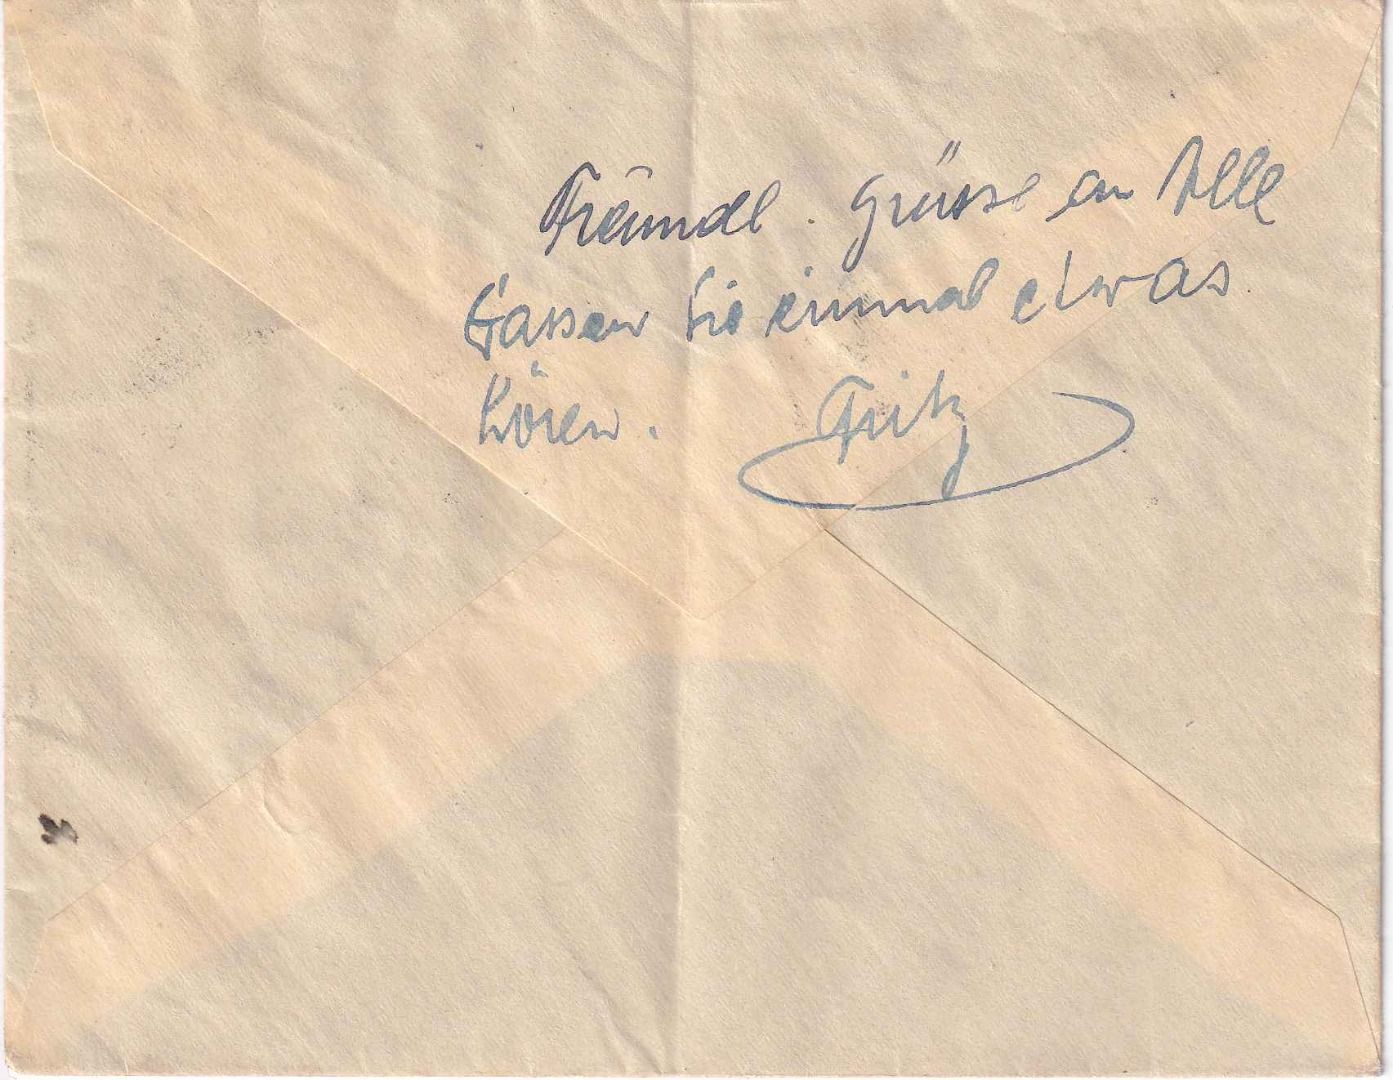 Freundl. Grüsse an Alle
Lassen Sie einmal etwas
hören. Fritz